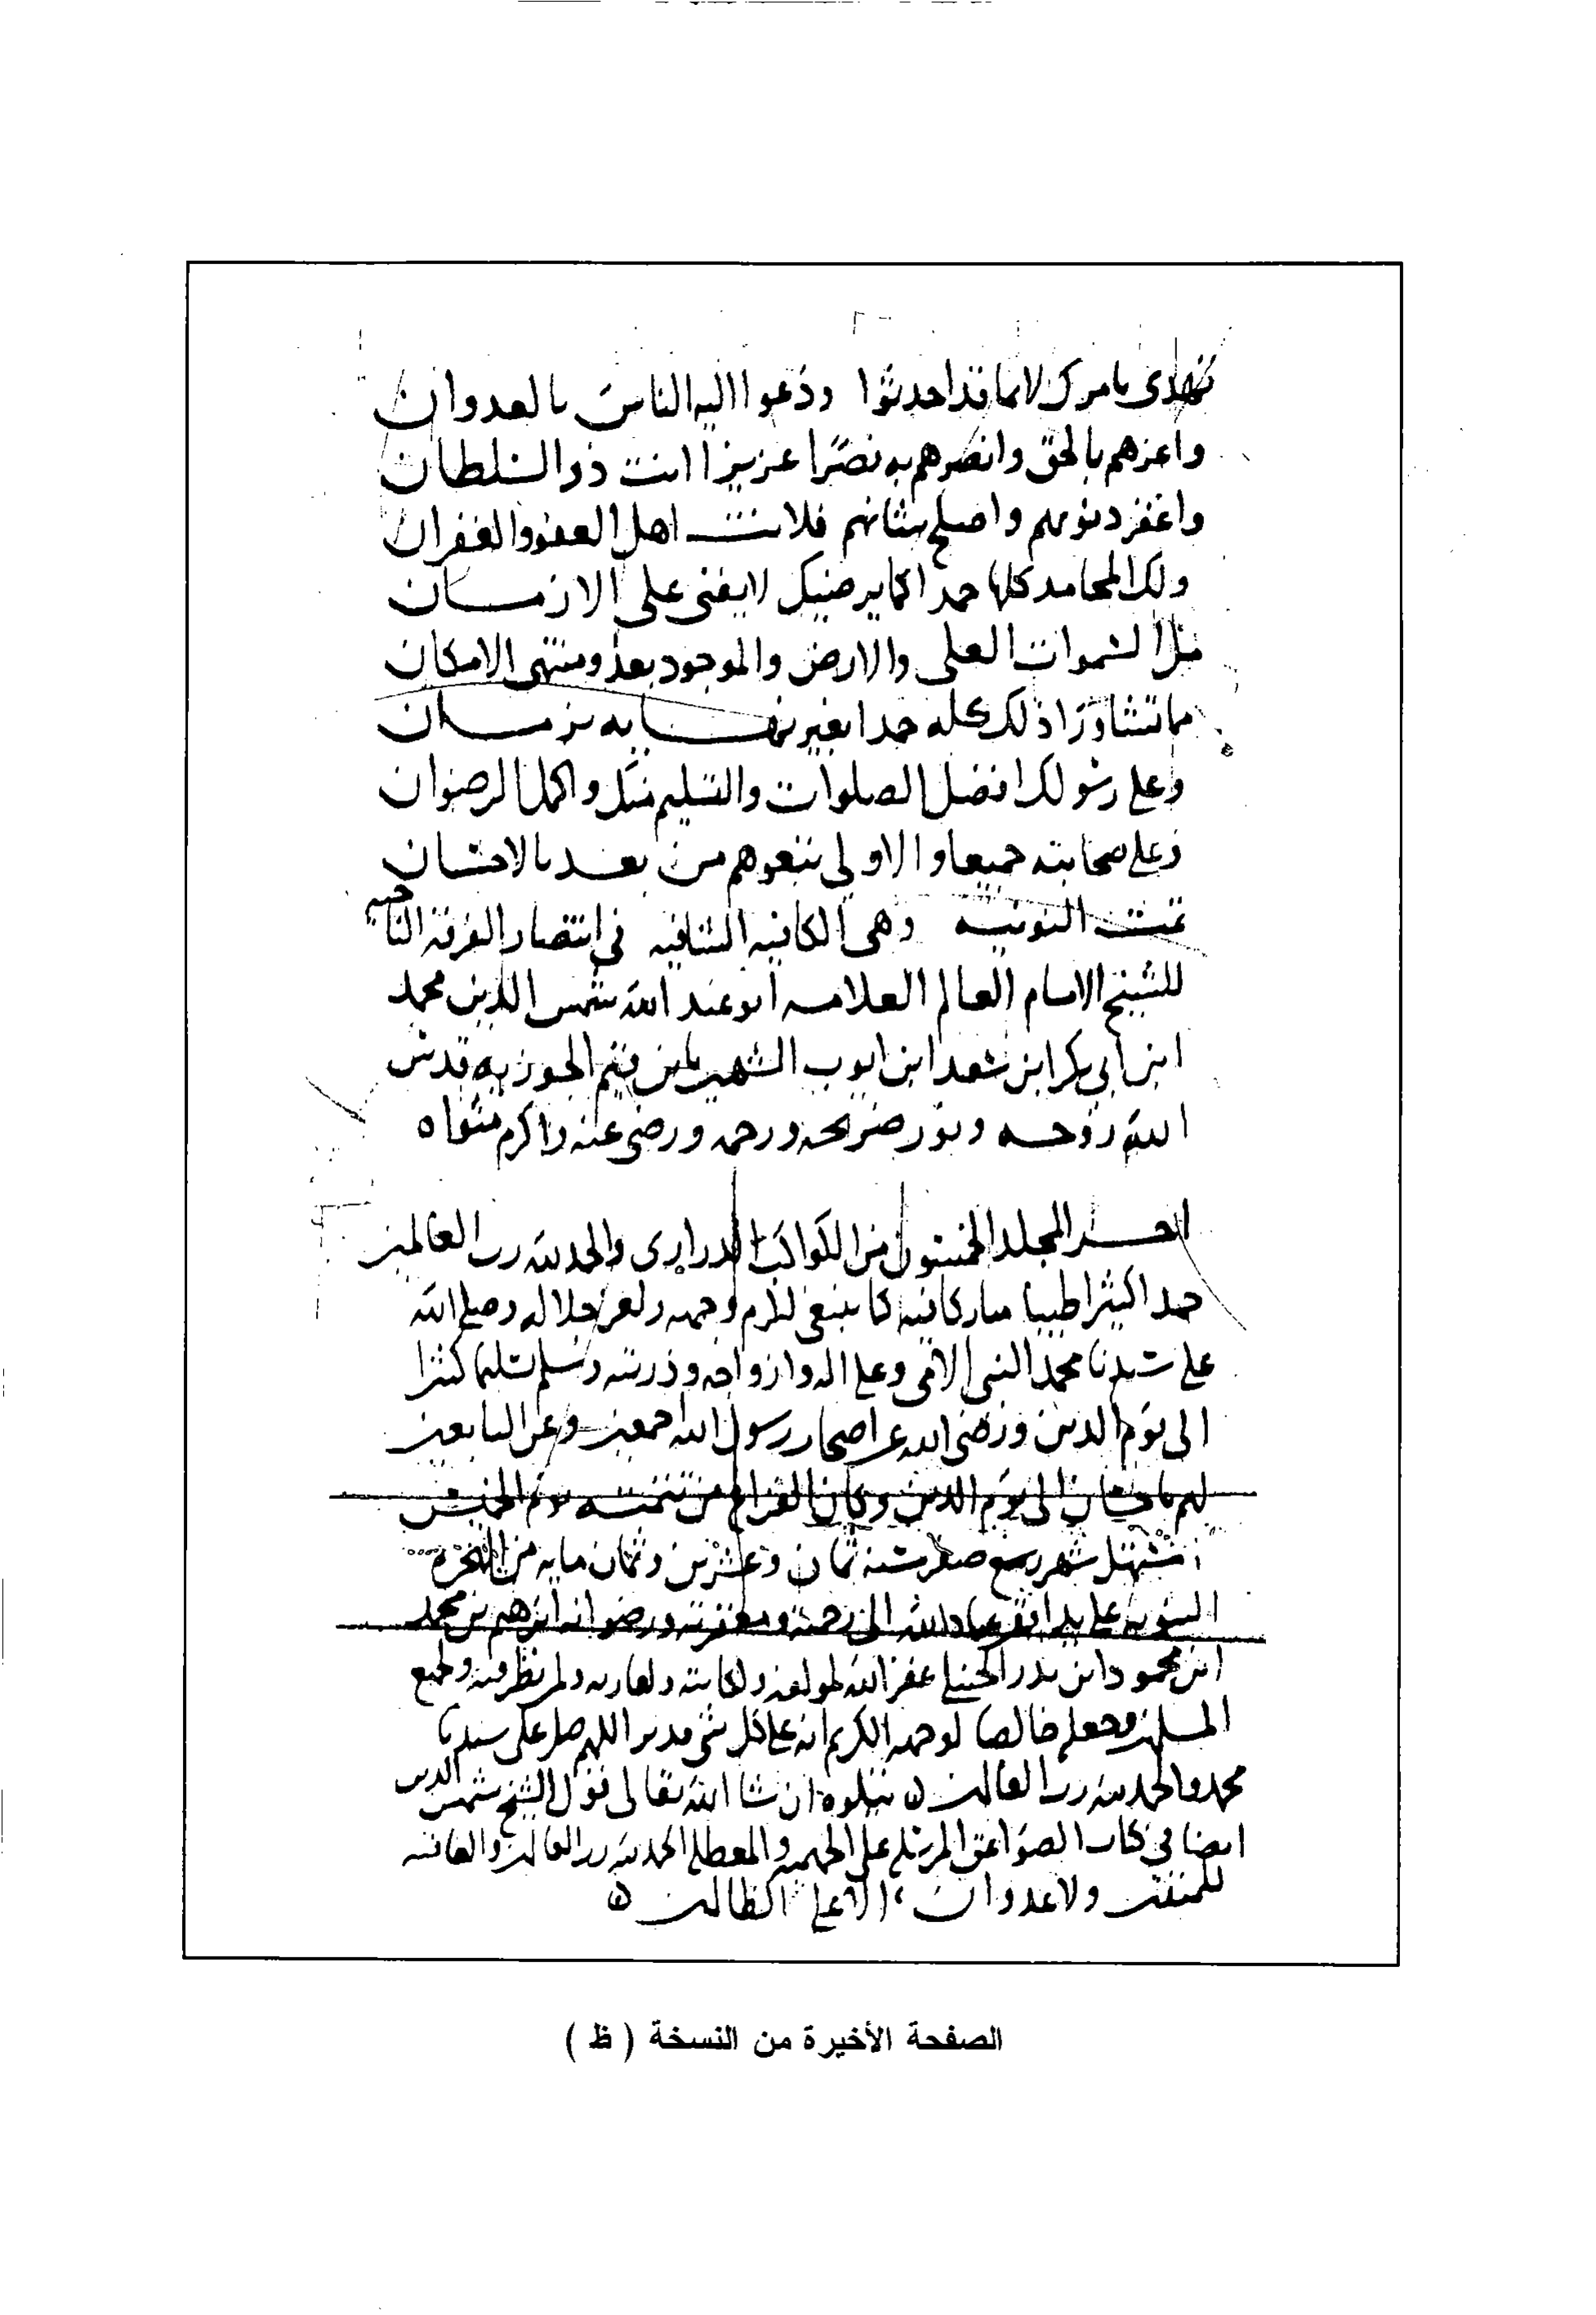 تهدى بامرك لا بما قد احدثوا ودعوا اليه الناس بالعدوان
واعزهم بالحق وانصرهم به نصرا عزيزا انت ذو السلطان
واغفر ذنوبهم واصلح شانهم فلانت اهل العفو والغفران
ولك المحامد كلها حمدا كما يرضيك لا يفنى على الازمان
مل السموات العلى والارض والموجود بعد ومنتهى الامكان
مما تشا ورا ذلك كله حمدا بغير نهايه بزمان
وعلى رسولك افضل الصلوات والتسليم منك واكمل الرضوان
وعلى صحابته جميعا والاولى تبعوهم من بعد بالاحسان
تمت النونيه وهى الكافيه الشافيه في انتصار الفرقه الناجيه
للشيخ الامام العالم العلامه ابو عبد الله شمس الدين محمد
ابن ابي بكر ابن سعد ابن ايوب الشهير بابن قيم الجوزيه قدس
الله روحه ونور ضريحه ورحمه ورضي عنه واكرم مثواه
اخر المجلد الخمسون من الكواكب الدراري والحمد لله رب العالمين
حمدا كثيرا طيبا مباركا فيه كما ينبغي لكرم وجهه ولعز جلاله وصلى الله
على سيدنا محمد النبي الامي وعلى اله وازواجه وذريته وسلم تسليما كثيرا
الى يوم الدين ورضي الله عن اصحاب رسول الله اجمعين وعن التابعين
لهم باحسان الى يوم الدين وكان الفراغ من تتمته يوم الخميس
مستهل شهر صفر سنه ثمان وعشرين وثمان مايه من الهجره
النبويه على يد افقر عباد الله الى رحمته ومغفرته ورضوانه ابرهيم بن محمد
ابن محمود ابن بدر الحنبلي غفر الله لمولفه ولكاتبه ولقاريه ولمن نظر فيه ولجميع
المسلمين وجعله خالصا لوجهه الكريم انه على كل شي قدير اللهم صل على سيدنا
محمد والحمد لله رب العالمين ه يتلوه ان شا الله تعالى قول الشيخ شمس الدين
ايضا في كتاب الصواعق المرسله على الجهميه والمعطله الحمد لله رب العالمين والعاقبه
للمتقين ولا عدوان الا على الظالمين ه
الصفحة الأخيرة من النسخة ( ظ )